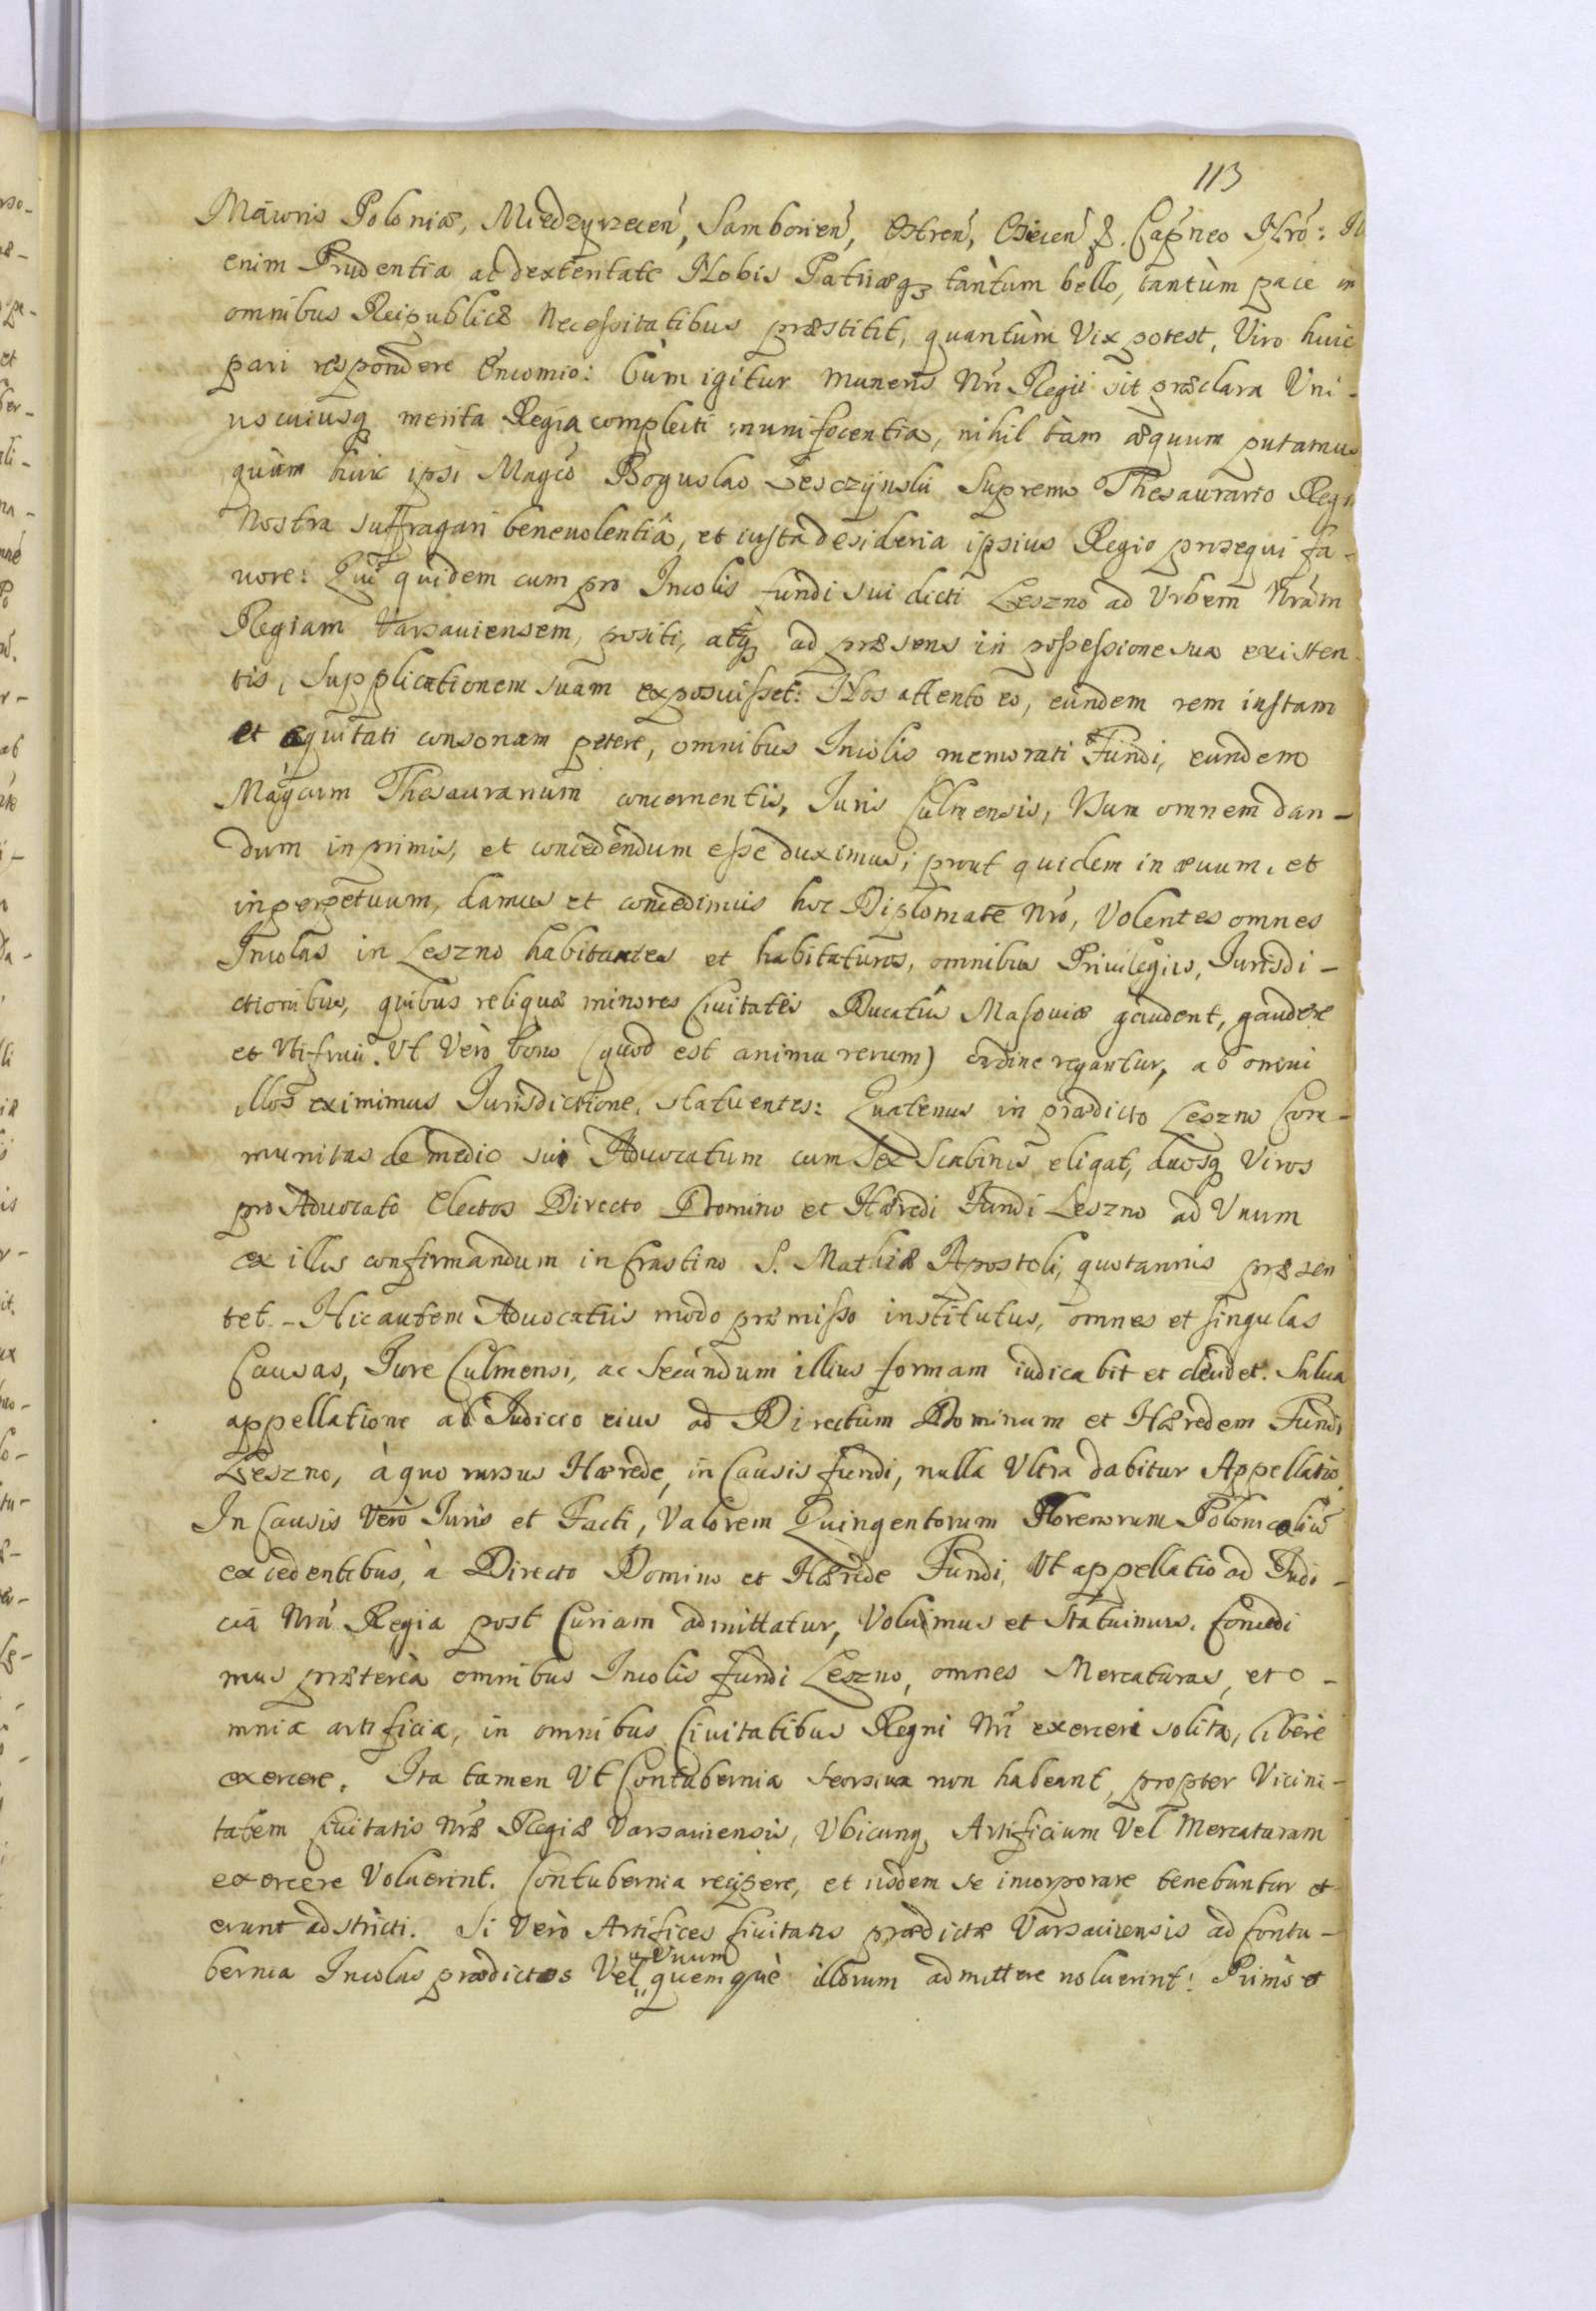 113
Maioris Poloniæ, Miedzyrzecen, Samborien, Ostren, Osiecen &. Capneo Nro:
enim Prudentia ac dexteritate Nobis Patriæq3 tantùm bello, tantùm pace in
omnibus Reipublicæ Necessitatibus præstitit, quantùm Vix potest, Viro huic
pari respondere Encomio: Cùm igitur muneris Nri Regii sit præclara Uni-
uscuiusq merita Regia complecti munificentia, nihil tàm æquum putamus
quàm huic ipsi Magco Boguslao Lesczÿnski Supremo Thesaurario Regni
Nostra suffragari benevolentiâ, et iusta desideria ipsius Regio prosequi fa-
uore: Qui quidem cum pro Incolis fundi sui dicti Leszno ad Urbem Nram
Regiam Varsauiensem, positi, atq3 ad præsens in possessione sua existen-
tis, Supplicationem suam exposuisset: Nos attento eo, eundem rem iustam
et æquitati consonam petere, omnibus Incolis memorati Fundi, eundem
Magcum Thesaurarium concernentis, Juris Culmensis, Usum omnem dan-
dum inprimis, et concedendum esse duximus; prout quidem in æuum, et
inperpetuum, damus et concedimus hoc Diplomate Nro, Volentes omnes
Incolas in Leszno habitantes et habitaturos, omnibus Priuilegiis, Jurisdi-
ctionibus, quibus reliquæ minores Ciuitates Ducatûs Masouiæ gaudent, gaudere
et Uti frui. Ut Verò bono (quod est anima rerum) ordine regantur, ab omni
illos eximimus Jurisdictione, statuentes: Quatenus in prædicto Leszno Com-
munitas de medio sui Aduocatum cum Sex Scabinis eligat, duosq Viros
pro Aduocato electos Directo Domino et Hæredi Fundi Leszno ad Unum
ex illis confirmandum in Crastino S. Mathiæ Apostoli, quotannis præsen
tet. - Hic autem Aduocatus modo præmisso institutus, omnes et singulas
Causas, Jure Culmensi, ac Secundum illius formam iudicabit et decidet. Salua
appellatione ab Iudicio eius ad Directum Dominum et Hæredem Fundi
Leszno, à quo rursus Hærede, in Causis fundi, nulla Ultra dabitur Appellatio.
In Causis Verò Juris et Facti, Valorem Quingentorum Florenorum Polonicaliũ
excedentibus, à Directo Domino et Hærede Fundi, Ut appellatio ad Judi-
cia Nra Regia post Curiam admittatur, Volumus et Statuimus. Concedi
mus prætereà omnibus Incolis fundi Leszno, omnes Mercaturas, et o-
mnia artificia, in omnibus Ciuitatibus Regni Nri exerceri solita, liberè
exercere. Ita tamen Ut Contubernia seorsiua non habeant, propter Vicini-
tatem Ciuitatis Nræ Regiæ Varsauiensis, Ubicunq, Artificium Vel Mercaturam
exercere Voluerint. Contubernia recipere, et iisdem se incorporare tenebuntur et
erunt adstricti. Si Verò Artifices Ciuitatis prædictæ Varsauiensis ad Contu-
bernia Incolas prædictos Vel "Unum quemquè illorum admittere noluerint! Primò et